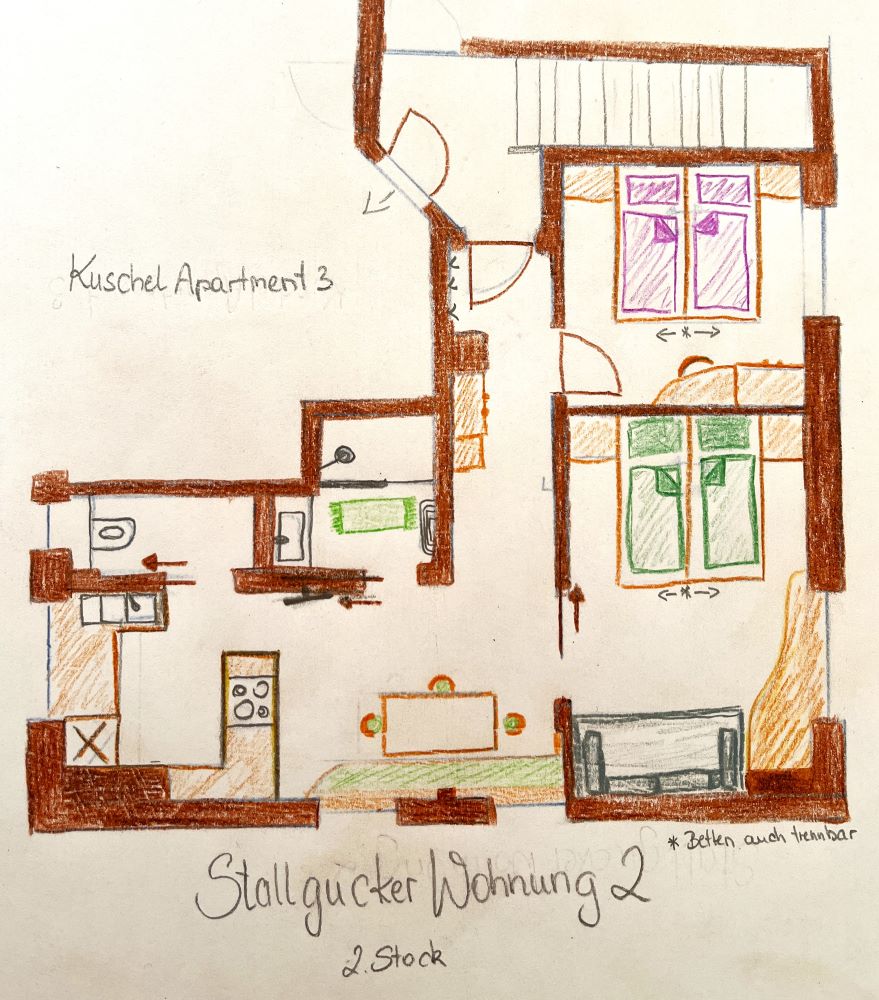 Kuschel Apartment 3
← * →
← * →
* Betten auch trennbar
Stallgucker Wohnung 2
2. Stock